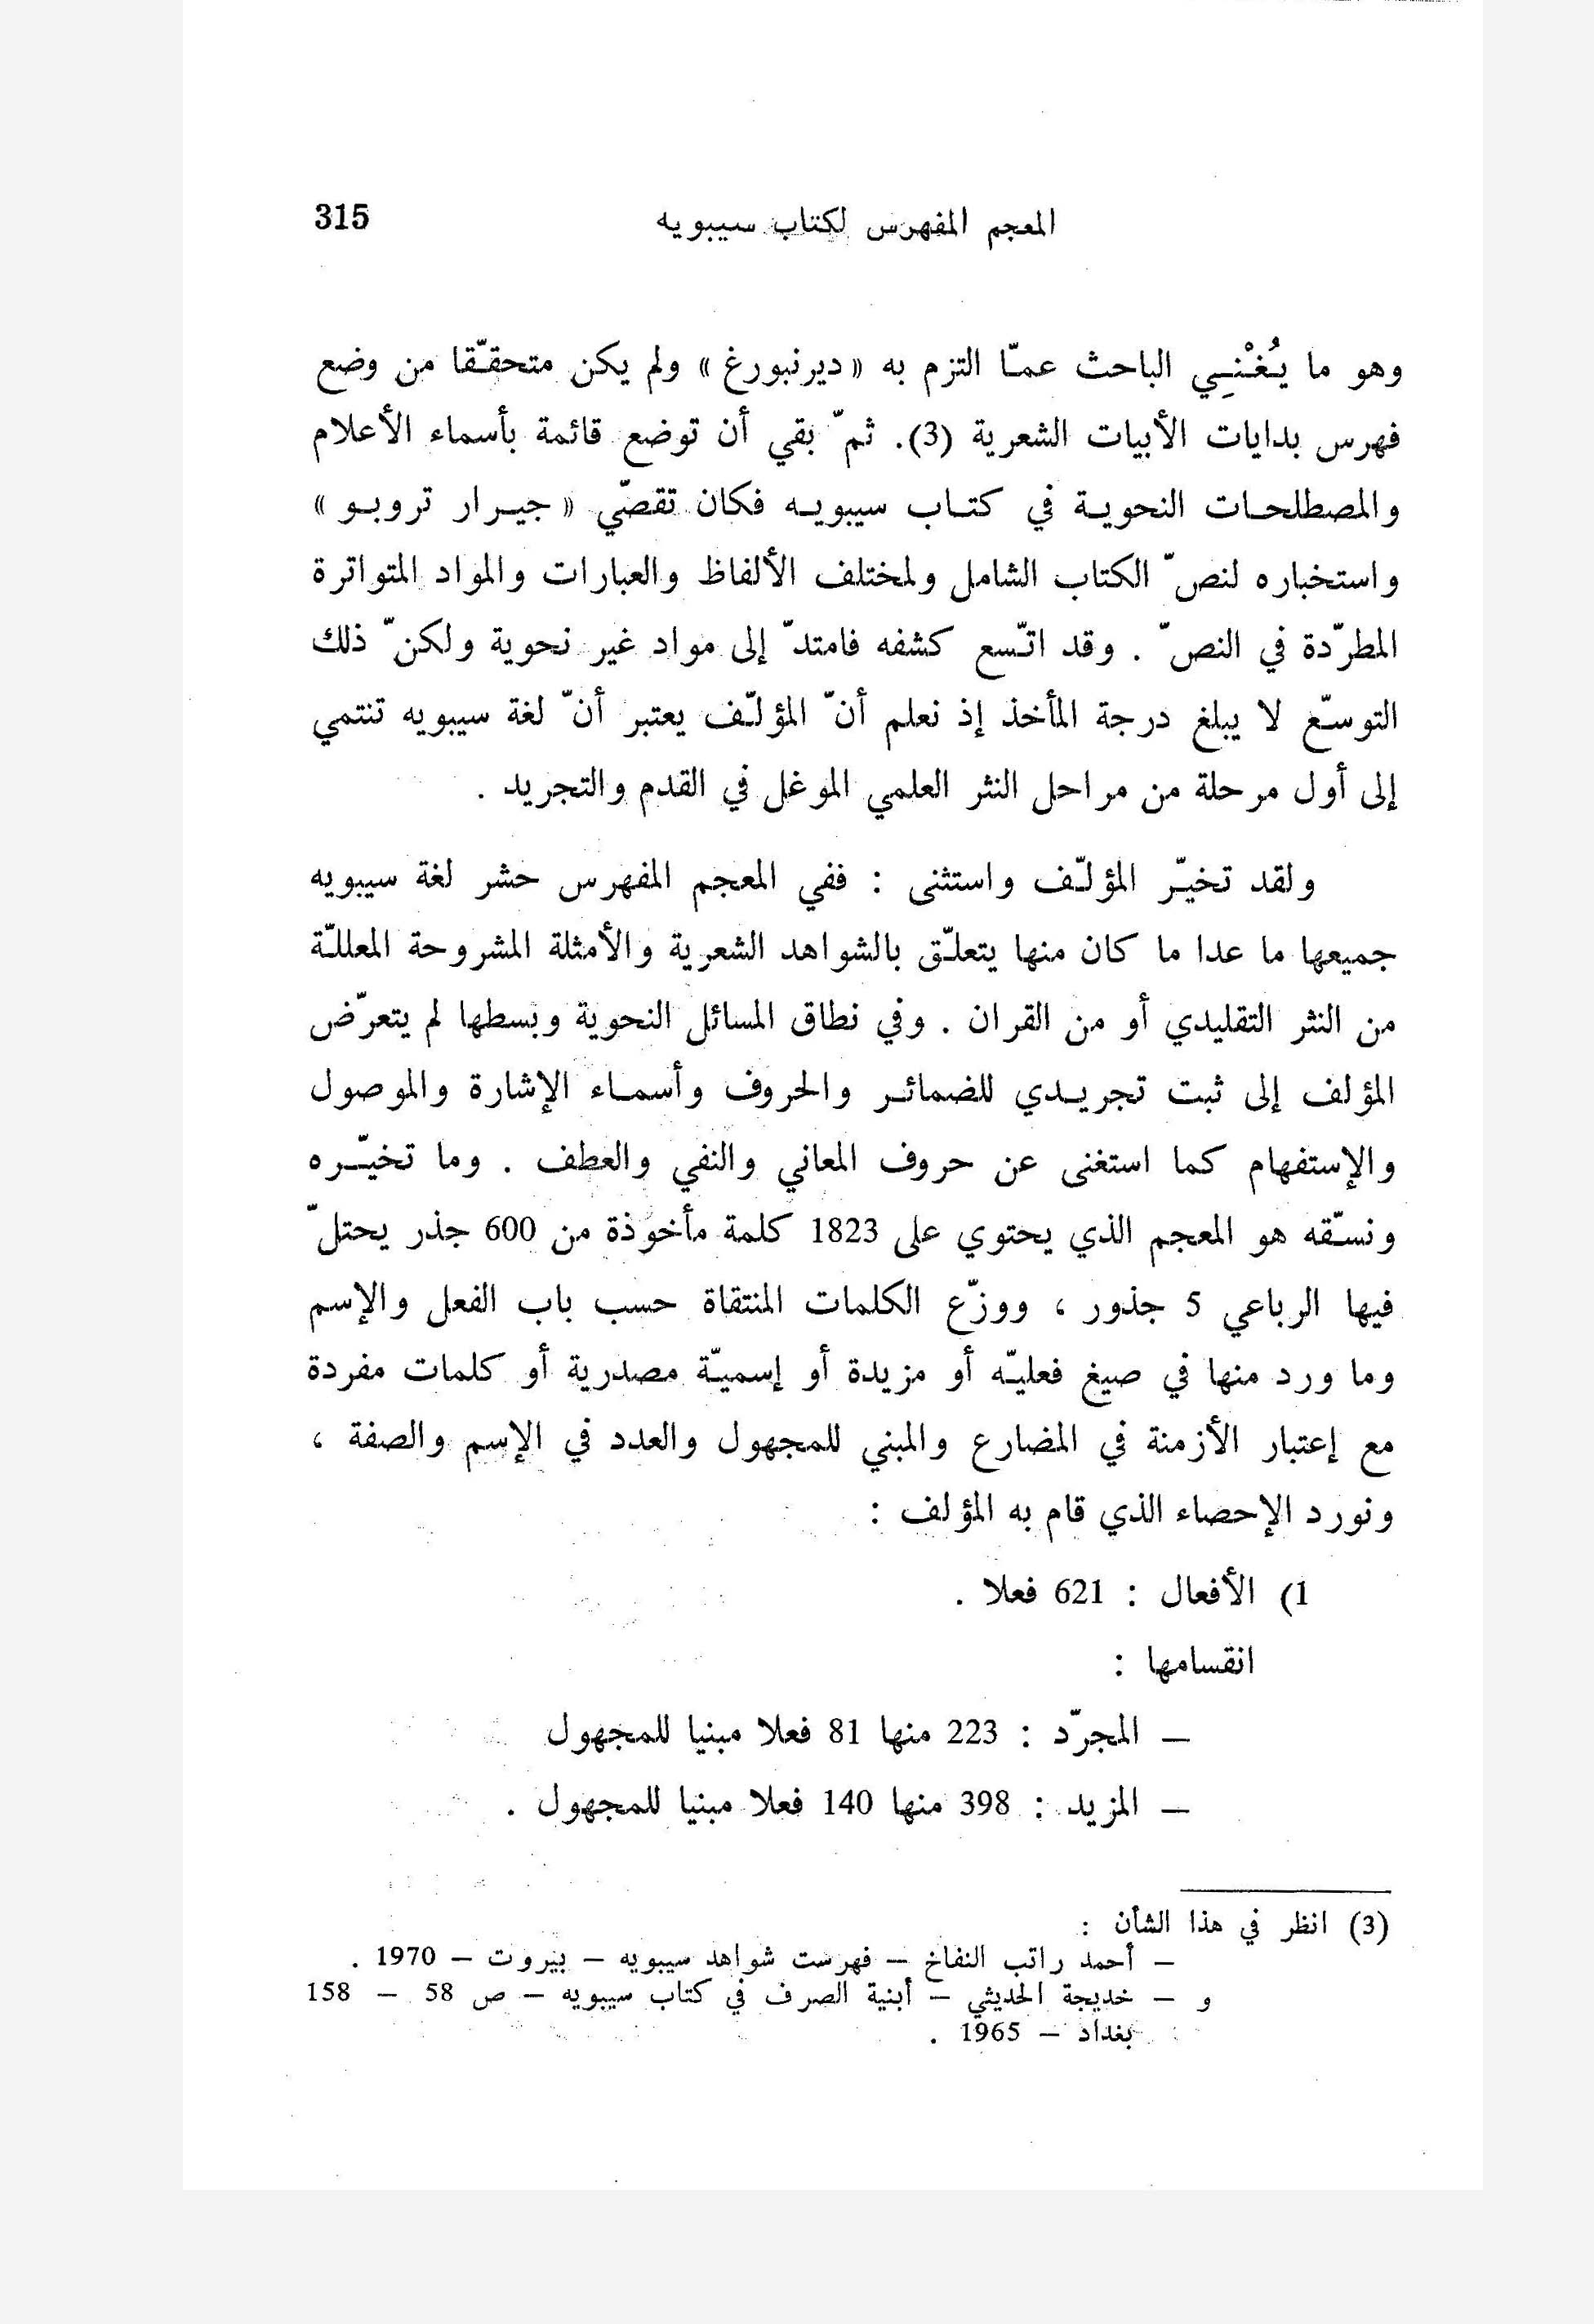 المعجم المفهرس لكتاب سيبويه 315
وهو ما يُغْنِي الباحث عمّا التزم به «ديرنبورغ» ولم يكن متحقّقا من وضع
فهرس بدايات الأبيات الشعرية (3). ثمّ بقي أن توضع قائمة بأسماء الأعلام
والمصطلحات النحوية في كتاب سيبويه فكان تقصّي «جيرار تروبو»
واستخباره لنصّ الكتاب الشامل ولمختلف الألفاظ والعبارات والمواد المتواترة
المطرّدة في النصّ . وقد اتّسع كشفه فامتدّ إلى مواد غير نحوية ولكنّ ذلك
التوسّع لا يبلغ درجة المأخذ إذ نعلم أنّ المؤلّف يعتبر أنّ لغة سيبويه تنتمي
إلى أول مرحلة من مراحل النثر العلمي الموغل في القدم والتجريد .
ولقد تخيّر المؤلّف واستثنى : ففي المعجم المفهرس حشر لغة سيبويه
جميعها ما عدا ما كان منها يتعلّق بالشواهد الشعرية والأمثلة المشروحة المعللّة
من النثر التقليدي أو من القران . وفي نطاق المسائل النحوية وبسطها لم يتعرّض
المؤلف إلى ثبت تجريدي للضمائر والحروف وأسماء الإشارة والموصول
والإستفهام كما استغنى عن حروف المعاني والنفي والعطف . وما تخيّره
ونسّقه هو المعجم الذي يحتوي على 1823 كلمة مأخوذة من 600 جذر يحتلّ
فيها الرباعي 5 جذور ، ووزّع الكلمات المنتقاة حسب باب الفعل والإسم
وما ورد منها في صيغ فعليّه أو مزيدة أو إسميّة مصدرية أو كلمات مفردة
مع إعتبار الأزمنة في المضارع والمبني للمجهول والعدد في الإسم والصفة ،
ونورد الإحصاء الذي قام به المؤلف :
1) الأفعال : 621 فعلا .
انقسامها :
— المجرّد : 223 منها 81 فعلا مبنيا للمجهول
— المزيد : 398 منها 140 فعلا مبنيا للمجهول .
(3) انظر في هذا الشأن :
— أحمد راتب النفاخ — فهرست شواهد سيبويه — بيروت — 1970 .
و — خديجة الحديثي — أبنية الصرف في كتاب سيبويه — ص 58 — 158
بغداد — 1965 .